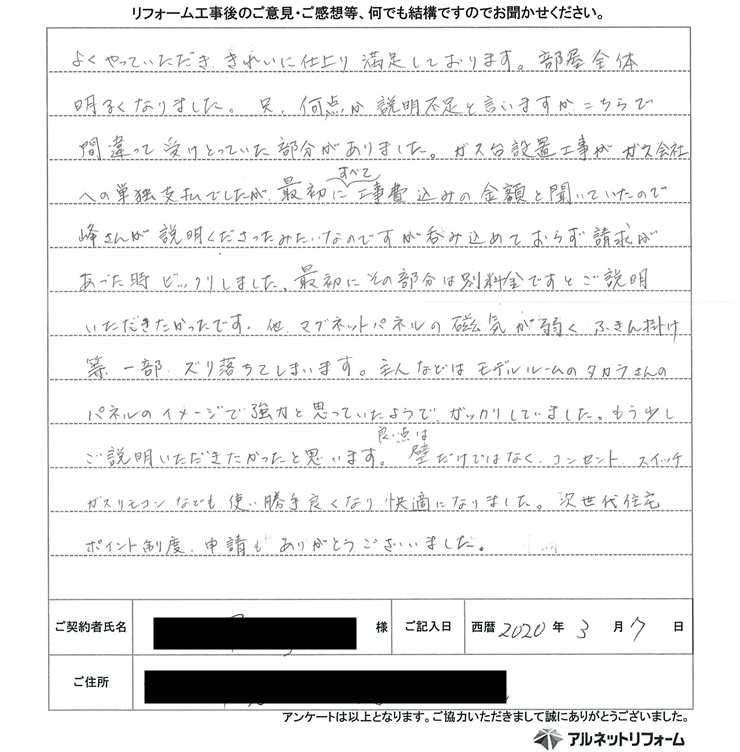 リフォーム工事後のご意見・ご感想等、何でも結構ですのでお聞かせください。
よくやっていただき、きれいに仕上り満足しております。部屋全体
明るくなりました。只、何点か説明不足と言いますか、こちらで
間違って受けとっていた部分がありました。ガス台設置工事がガス会社
すべて
への単独支払でしたが、最初に工事費込みの金額と聞いていたので
峰さんが説明くださったみたいなのですが呑み込めておらず請求が
あった時ビックリしました。最初にその部分は別料金ですとご説明
いただきたかったです。他、マグネットパネルの磁気が弱く、ふきん掛け
等、一部、ズリ落ちてしまいます。主人などはモデルルームのタカラさんの
パネルのイメージで強力と思っていたようで、ガッカリしていました。もう少し
良い点は
ご説明いただきたかったと思います。壁だけではなく、コンセント、スイッチ
ガスリモコンなども使い勝手良くなり快適になりました。次世代住宅
ポイント制度、申請もありがとうございました。
ご契約者氏名 様 ご記入日 西暦 2020 年 3 月 7 日
ご住所
アンケートは以上となります。ご協力いただきまして誠にありがとうございました。
アルネットリフォーム